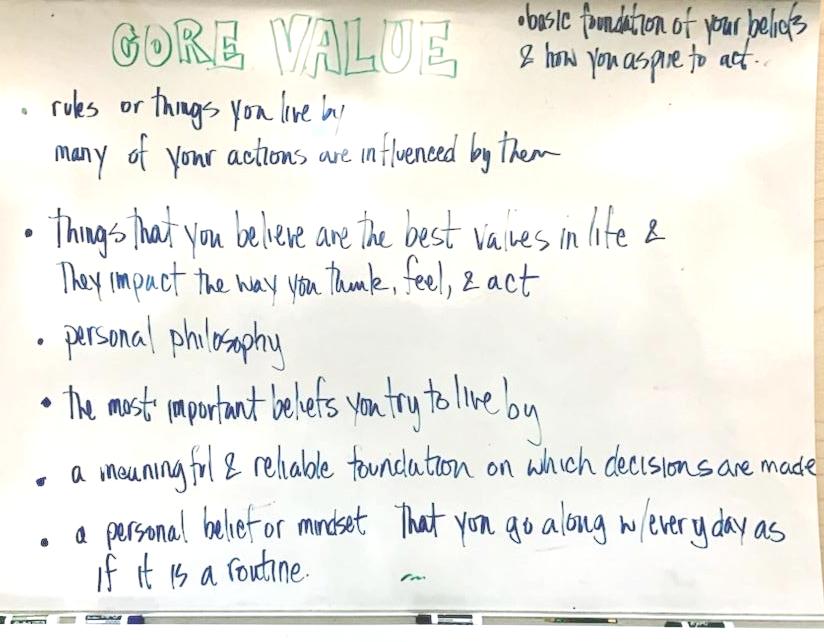 CORE VALUE
• basic foundation of your beliefs
& how you aspire to act..
• rules or things you live by
many of your actions are influenced by them
• Things that you believe are the best values in life &
They impact the way you think, feel, & act
• personal philosophy
• The most important beliefs you try to live by
• a meaningful & reliable foundation on which decisions are made
• a personal belief or mindset That you go along w/every day as
if it is a routine.